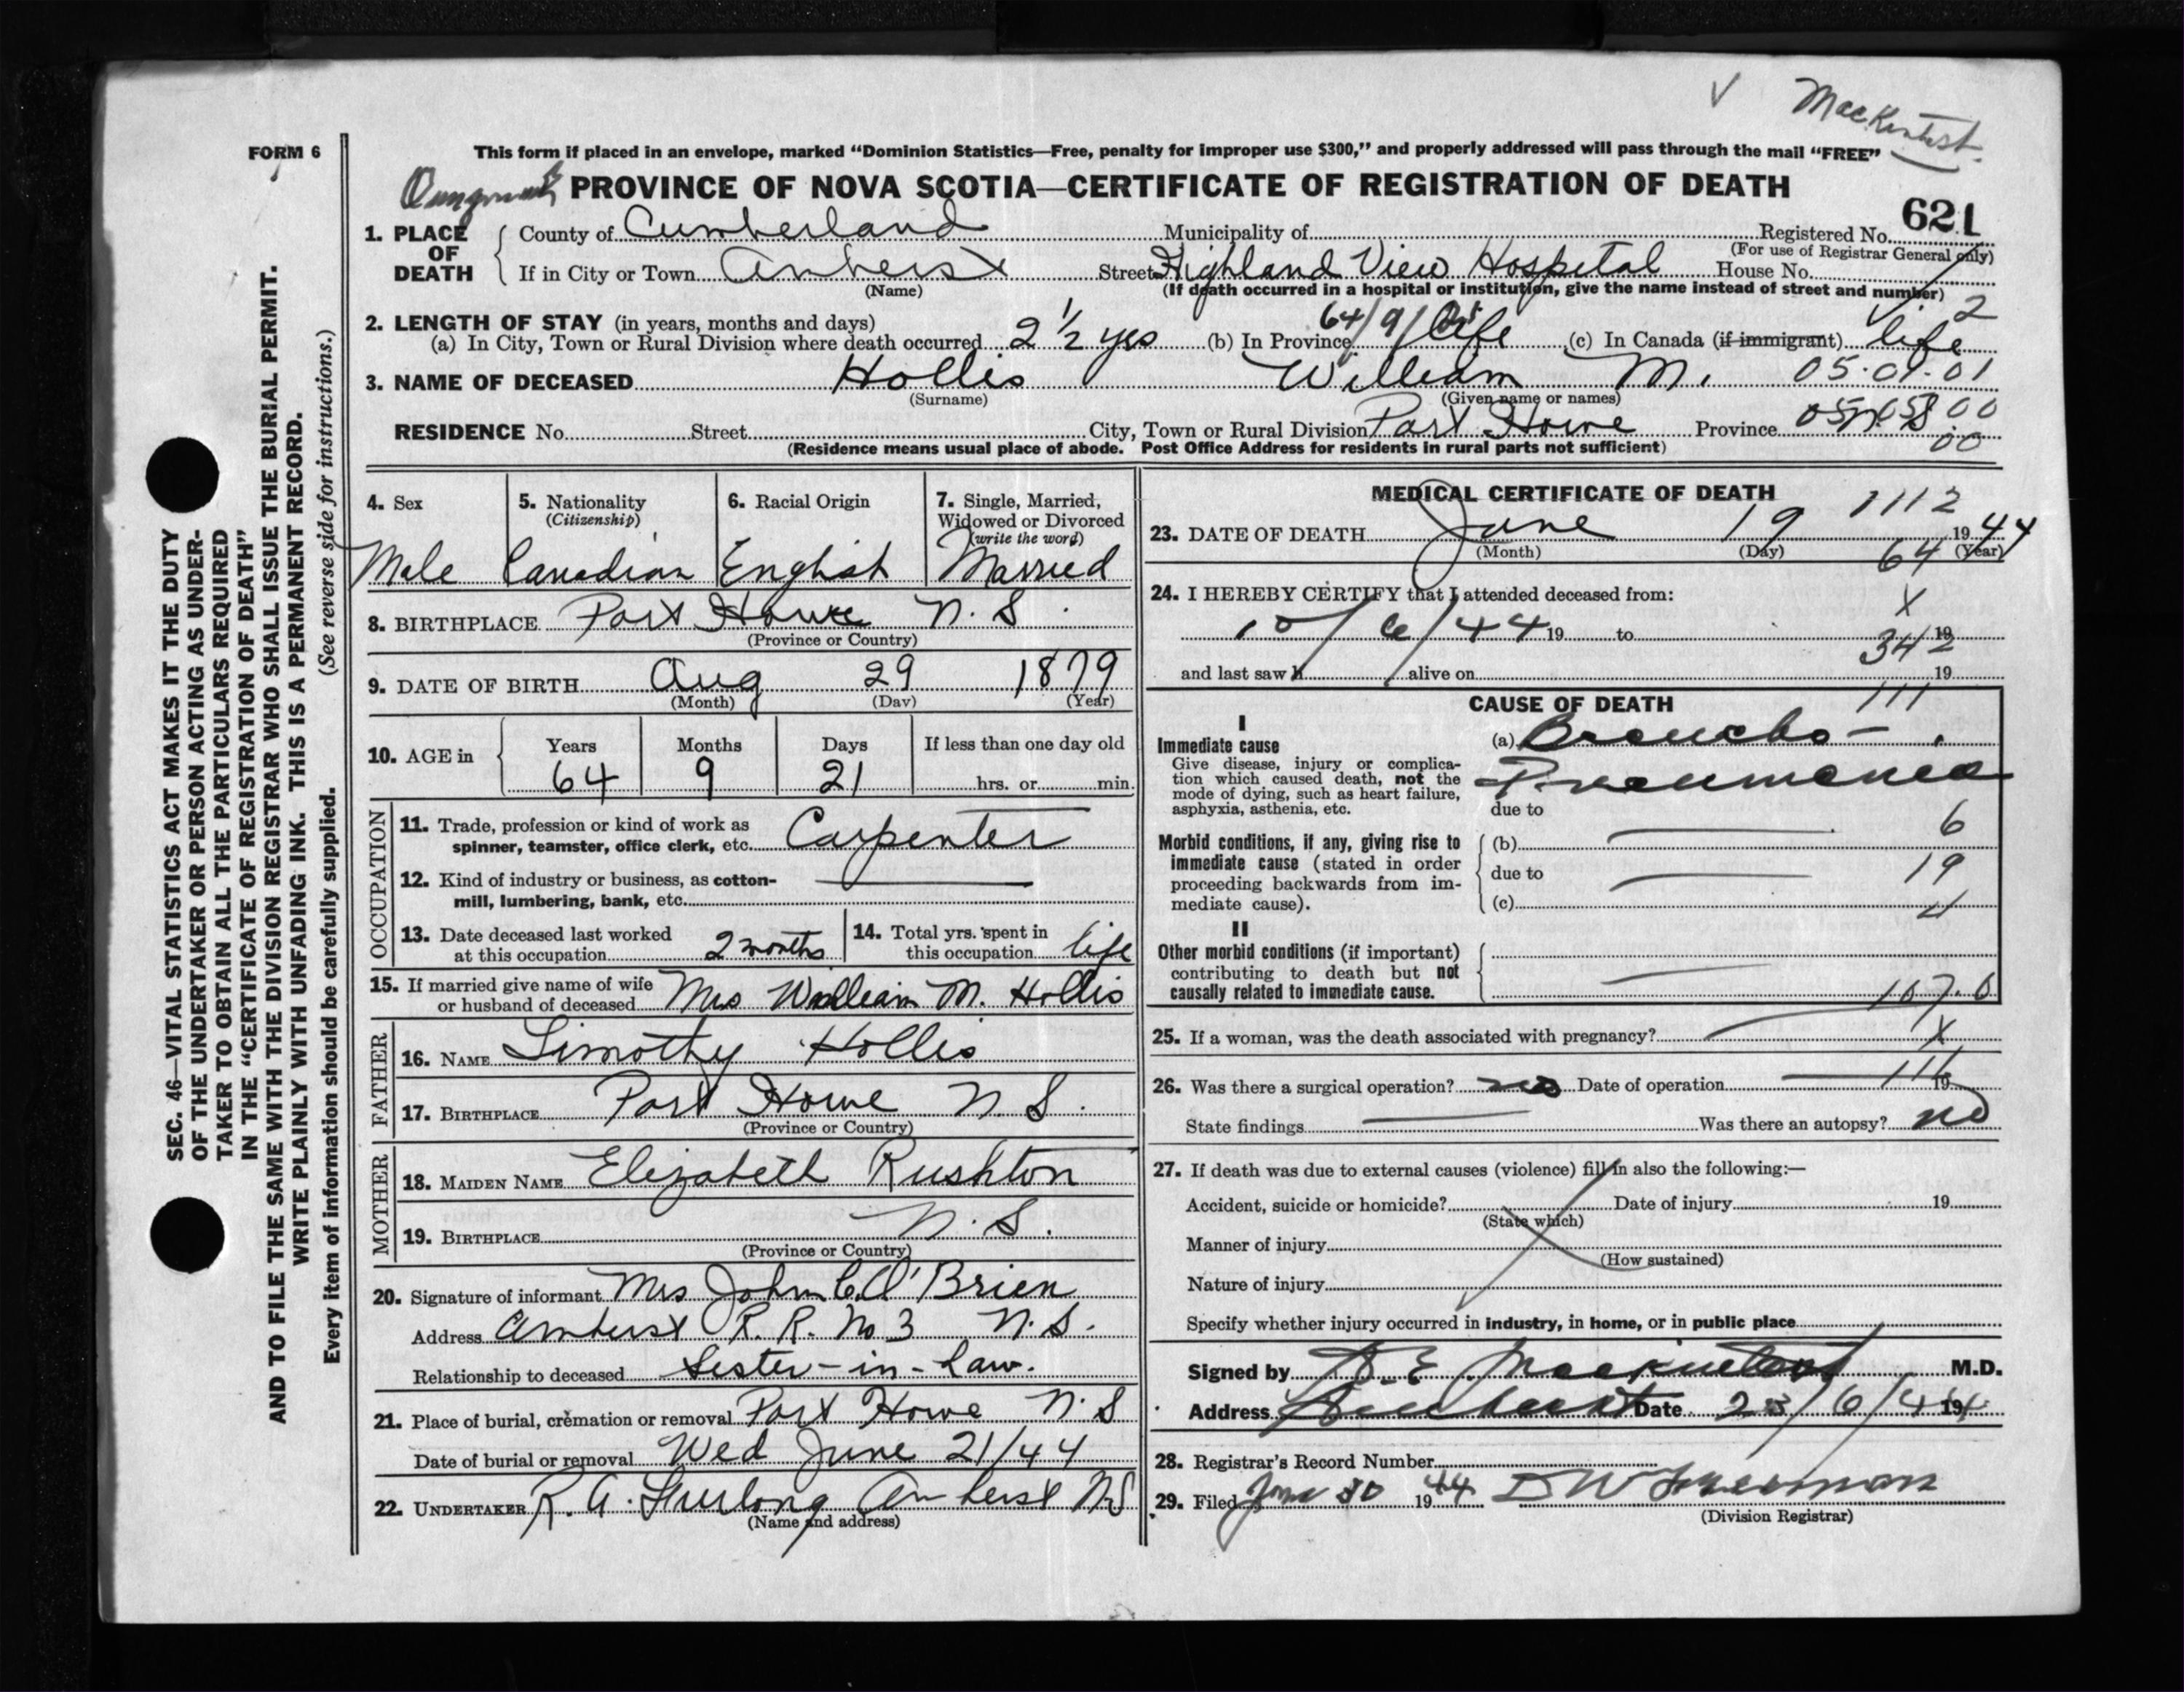 MacKintosh
FORM 6
This form if placed in an envelope, marked “Dominion Statistics—Free, penalty for improper use $300,” and properly addressed will pass through the mail “FREE”
PROVINCE OF NOVA SCOTIA—CERTIFICATE OF REGISTRATION OF DEATH
621
1. PLACE OF DEATH
County of Cumberland Municipality of Registered No.
(For use of Registrar General only)
If in City or Town Amherst Street Highland View Hospital House No.
(Name) (If death occurred in a hospital or institution, give the name instead of street and number)
2. LENGTH OF STAY (in years, months and days) 64/9/21 2
(a) In City, Town or Rural Division where death occurred 2 1/2 yrs (b) In Province life (c) In Canada (if immigrant) life
3. NAME OF DECEASED Hollis William M. 05.01.01
(Surname) (Given name or names)
RESIDENCE No. Street City, Town or Rural Division Port Howe Province N.S. 00
(Residence means usual place of abode. Post Office Address for residents in rural parts not sufficient) 00
4. Sex
Male
5. Nationality
(Citizenship)
Canadian
6. Racial Origin
English
7. Single, Married,
Widowed or Divorced
(write the word)
Married
8. BIRTHPLACE Port Howe N.S.
(Province or Country)
9. DATE OF BIRTH Aug 29 1879
(Month) (Day) (Year)
10. AGE in
Years Months Days If less than one day old
64 9 21 hrs. or min.
OCCUPATION
11. Trade, profession or kind of work as
spinner, teamster, office clerk, etc. Carpenter
12. Kind of industry or business, as cotton-
mill, lumbering, bank, etc.
13. Date deceased last worked
at this occupation 2 months
14. Total yrs. spent in
this occupation life
15. If married give name of wife
or husband of deceased Mrs William M. Hollis
FATHER
16. NAME Timothy Hollis
17. BIRTHPLACE Port Howe N.S.
(Province or Country)
MOTHER
18. MAIDEN NAME Elizabeth Rushton
19. BIRTHPLACE N.S.
(Province or Country)
20. Signature of informant Mrs John C. O'Brien
Address Amherst R.R. No 3 N.S.
Relationship to deceased Sister-in-Law.
21. Place of burial, cremation or removal Port Howe N.S
Date of burial or removal Wed June 21/44
22. UNDERTAKER R.A. Furlong Amherst NS
(Name and address)
MEDICAL CERTIFICATE OF DEATH 1112
23. DATE OF DEATH June 19 1944
(Month) (Day) (Year)
64
24. I HEREBY CERTIFY that I attended deceased from:
X
10/6/44 19 to 19
342
and last saw h alive on 19
CAUSE OF DEATH 111
I
Immediate cause
Give disease, injury or complica-
tion which caused death, not the
mode of dying, such as heart failure,
asphyxia, asthenia, etc.
(a) Broncho-
Pneumonia
due to
Morbid conditions, if any, giving rise to
immediate cause (stated in order
proceeding backwards from im-
mediate cause).
(b) 6
due to 19
(c)
II
Other morbid conditions (if important)
contributing to death but not
causally related to immediate cause.
107.0
25. If a woman, was the death associated with pregnancy? X
26. Was there a surgical operation? no Date of operation 19
State findings Was there an autopsy? no
27. If death was due to external causes (violence) fill in also the following:—
Accident, suicide or homicide? Date of injury 19
(State which)
Manner of injury
(How sustained)
Nature of injury
Specify whether injury occurred in industry, in home, or in public place
Signed by D. E. Mackintosh M.D.
Address Amherst Date 23/6/44 19
28. Registrar's Record Number
29. Filed June 30 1944
(Division Registrar)
SEC. 46—VITAL STATISTICS ACT MAKES IT THE DUTY
OF THE UNDERTAKER OR PERSON ACTING AS UNDER-
TAKER TO OBTAIN ALL THE PARTICULARS REQUIRED
IN THE “CERTIFICATE OF REGISTRATION OF DEATH”
AND TO FILE THE SAME WITH THE DIVISION REGISTRAR WHO SHALL ISSUE THE BURIAL PERMIT.
WRITE PLAINLY WITH UNFADING INK. THIS IS A PERMANENT RECORD.
Every item of information should be carefully supplied. (See reverse side for instructions.)